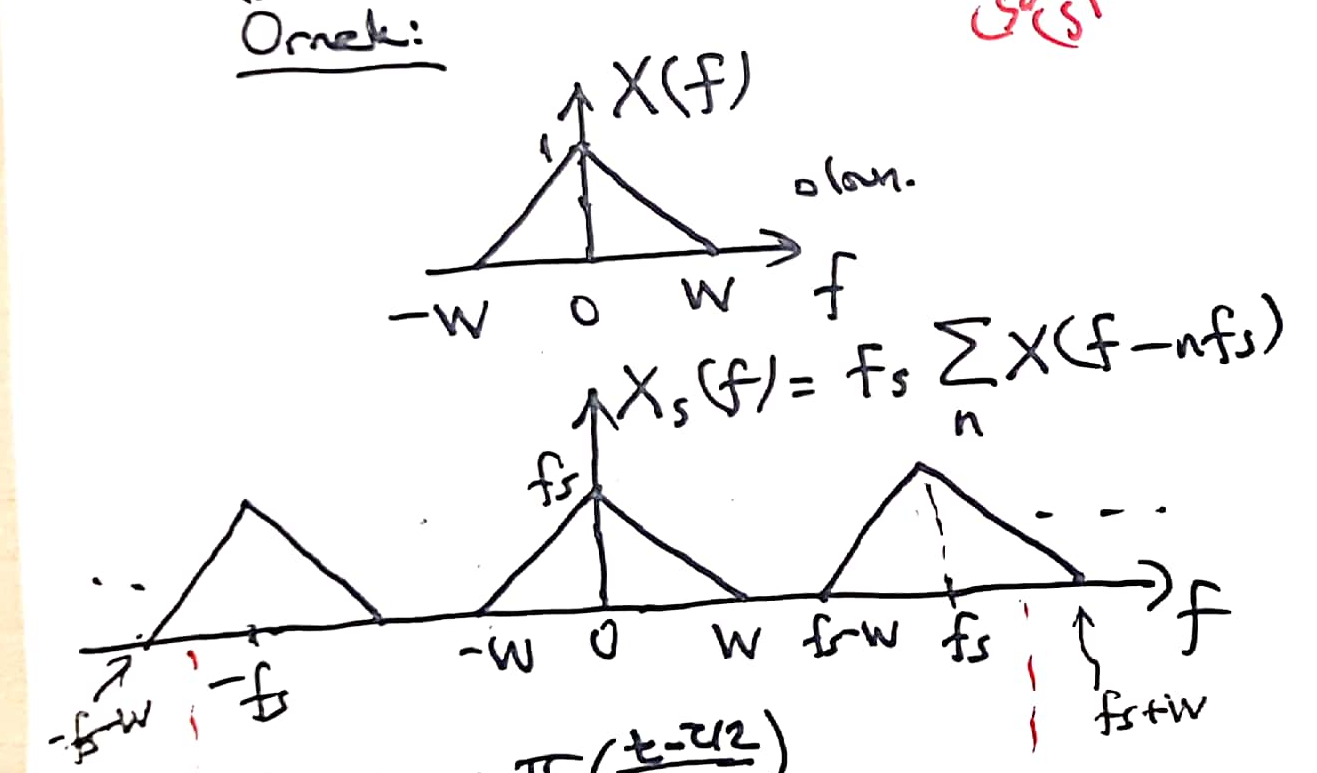 Örnek:
X(f)
1
olsun.
-W 0 W f
X_s(f) = f_s Σ_n X(f-nf_s)
f_s
.. - - -
-W 0 W f_s-W f_s f
-f_s-W -f_s f_s+W
Π(t-τ/2)